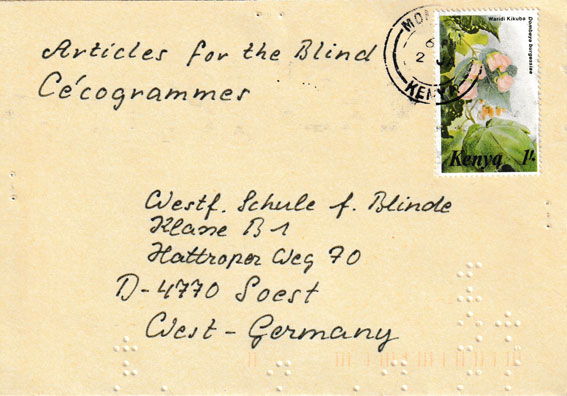 Articles for the Blind
Cécogrammes
KENYA
Waridi Kikuba
Dombeya burgessiae
Kenya 1/-
Westf. Schule f. Blinde
Klasse B1
Hattroper Weg 70
D-4770 Soest
West-Germany